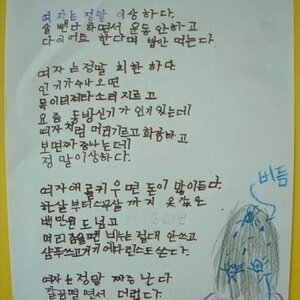 여자는 정말 이상하다.
살 뺀다 하면서 운동 안하고
다이어트 한다며 밥안 먹는다.
여자는 정말 희한 하다.
인기가수 나오면
목이 터져라 소리 지르고
요즘 동방신기가 인기 있는데
여자처럼 머리기르고 화장하고
보면짜증나는데
정말이상하다.
여자애를 키우면 돈이 많이든다.
한살부터 스무살 까지 옷값은
백만원도 넘고
머리 감을땐 비누는 절대 안쓰고
샴푸쓰고 거기에다 린스도 쓴다.
여자는 정말 짜증 난다
깔끔떨면서 더럽다.
버듬